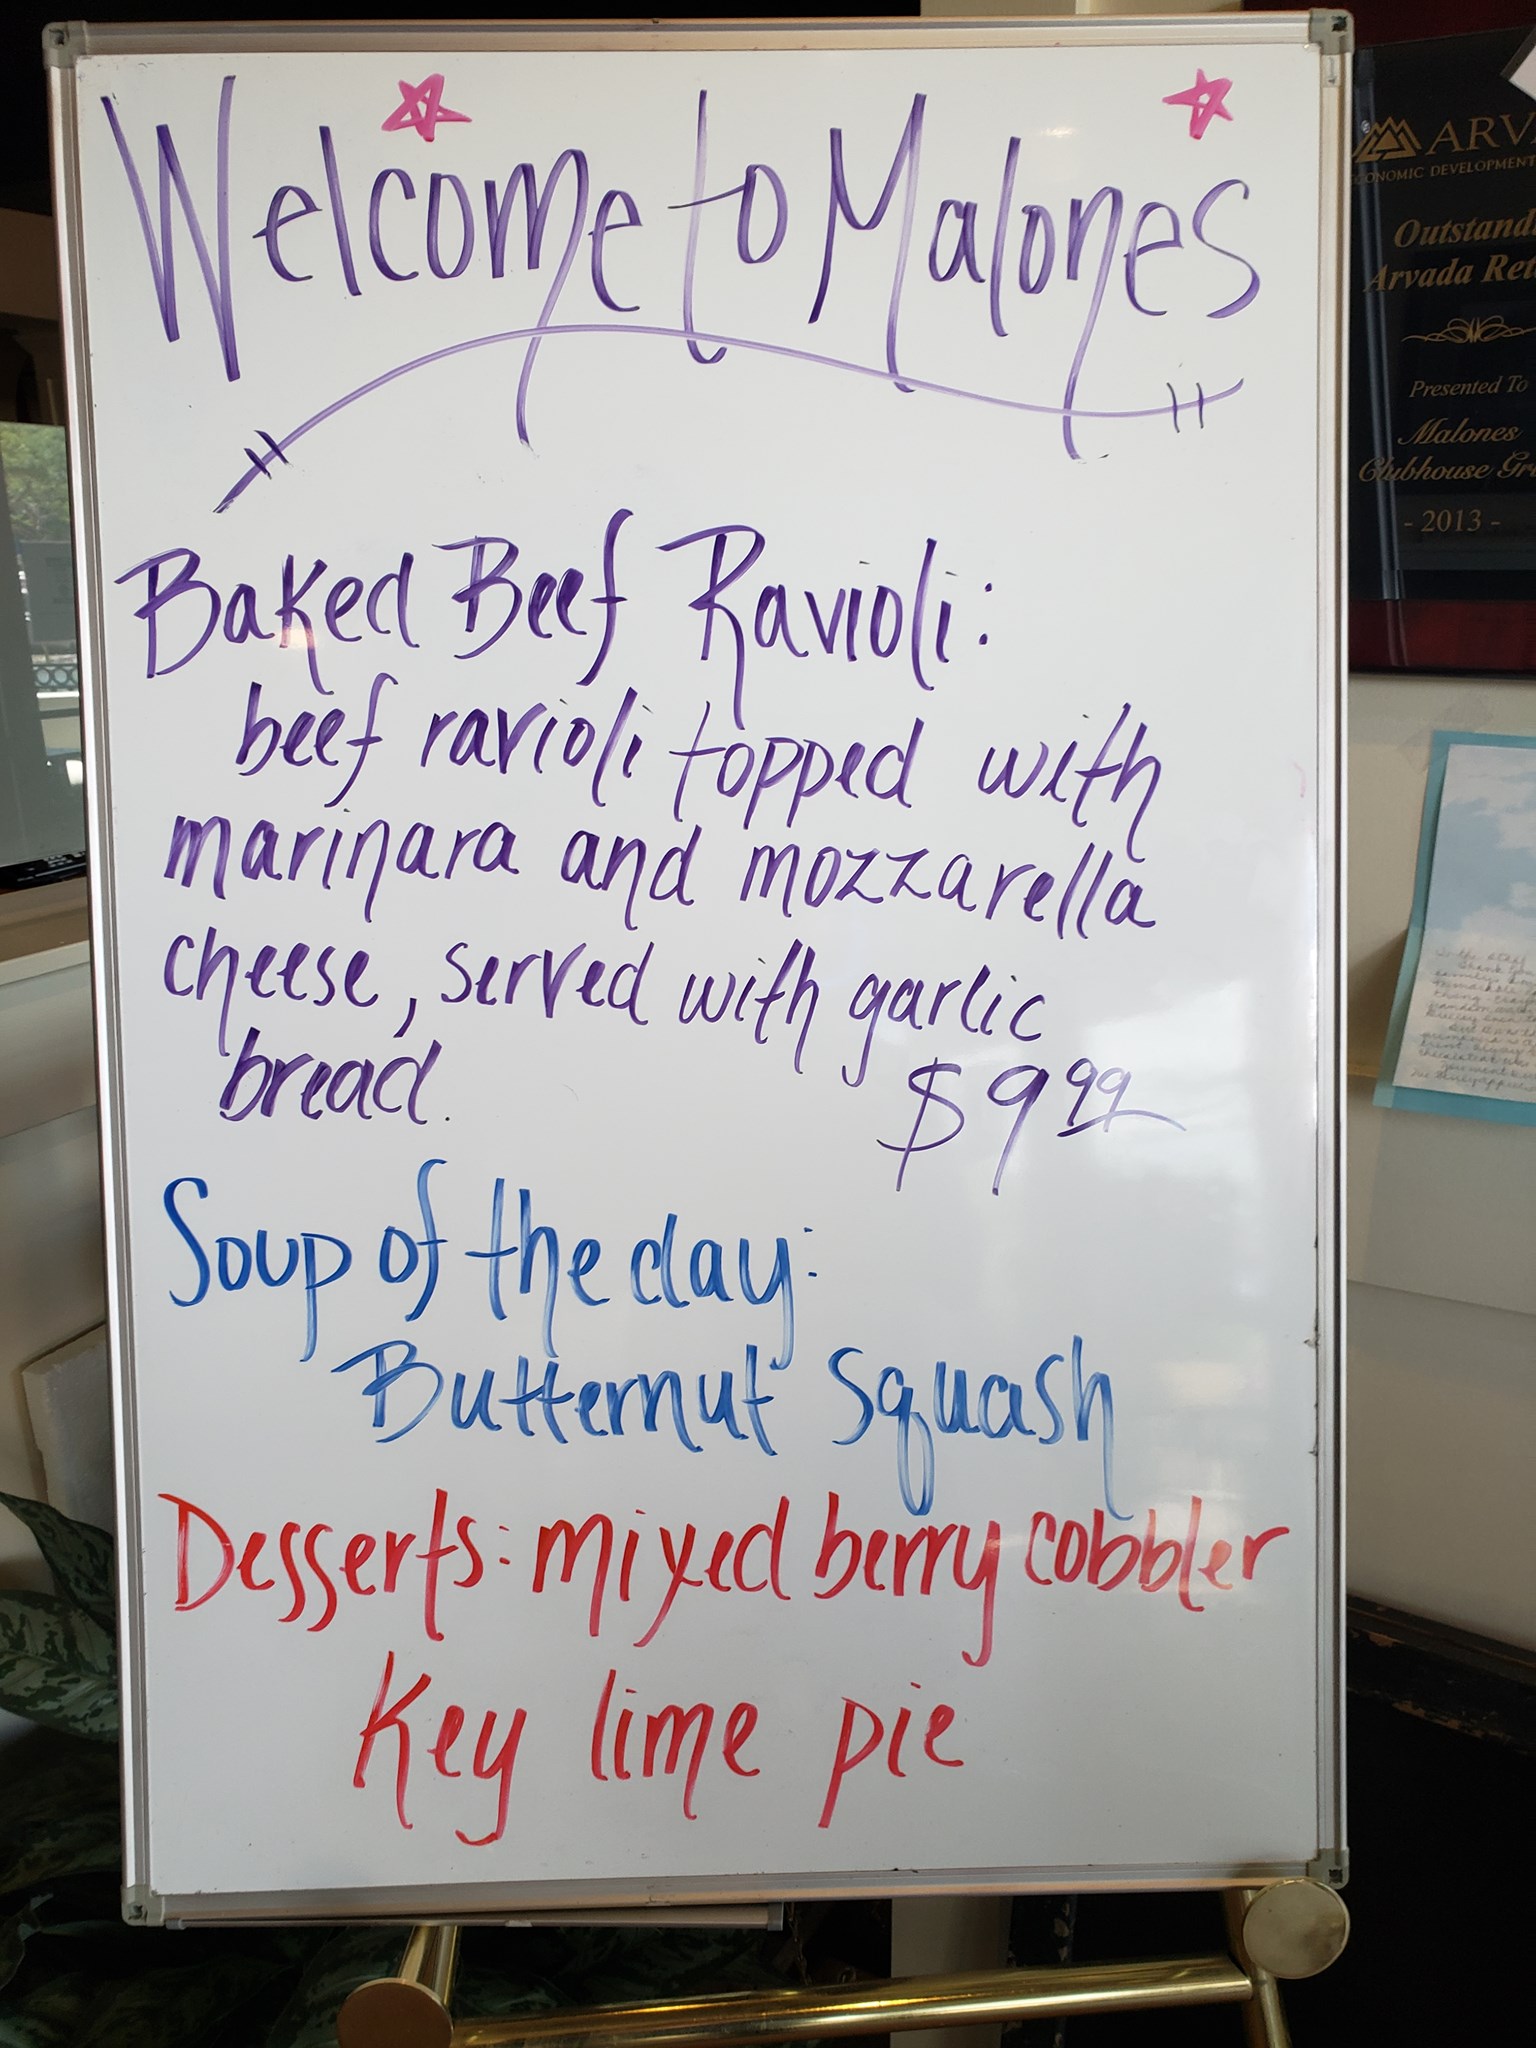 Welcome to Malones
Baked Beef Ravioli:
beef ravioli topped with
marinara and mozzarella
cheese, served with garlic
bread.
$9.99
Soup of the day:
Butternut Squash
Desserts: mixed berry cobbler
Key lime pie
ARV
ECONOMIC DEVELOPMENT
Outstand
Arvada Ret
Presented To
Malones
Clubhouse Gr
- 2013 -